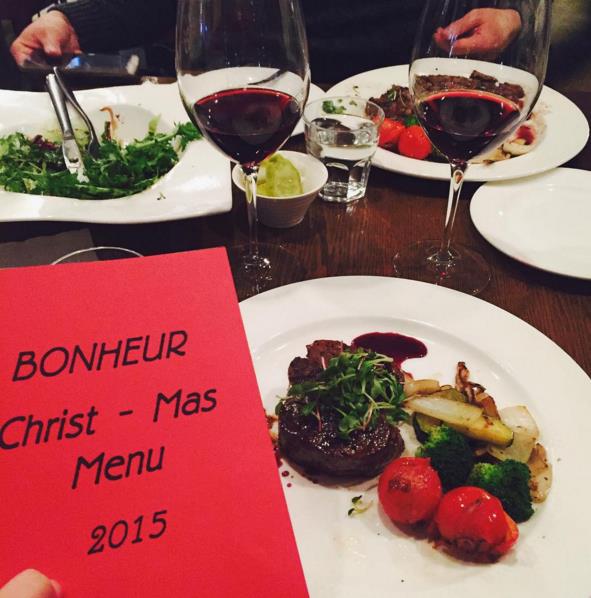 BONHEUR
Christ - Mas
Menu
2015